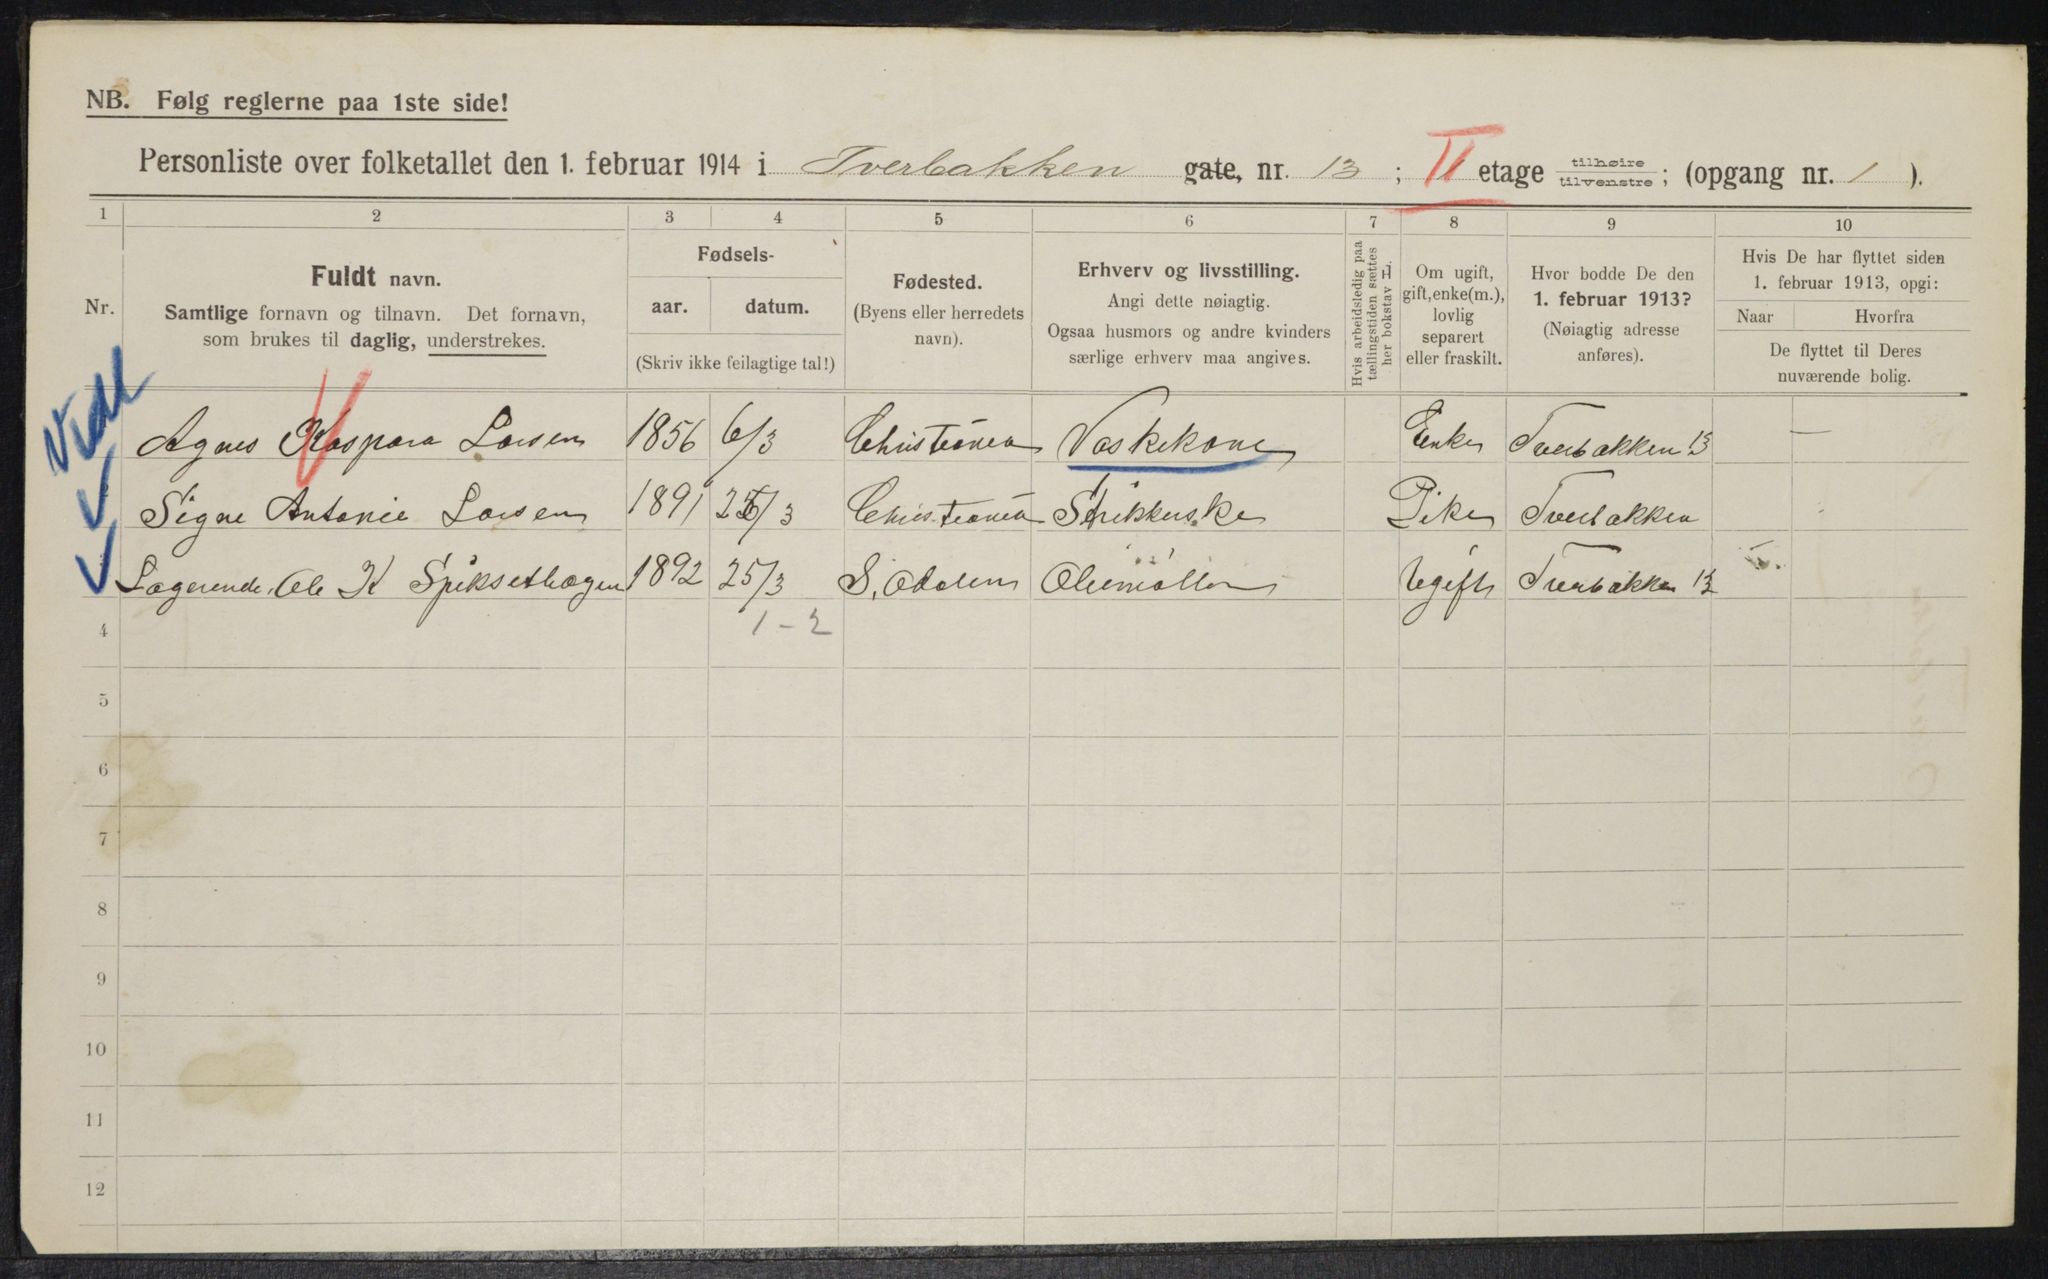 NB. Følg reglerne paa 1ste side!
Personliste over folketallet den 1. februar 1914 i Tverbakken gate, nr. 13 ; II etage tilhøire / tilvenstre ; (opgang nr. 1 ).
1 2 3 4 5 6 7 8 9 10
Nr.
Fuldt navn.
Samtlige fornavn og tilnavn. Det fornavn,
som brukes til daglig, understrekes.
Fødsels-
aar. datum.
(Skriv ikke feilagtige tal!)
Fødested.
(Byens eller herredets
navn).
Erhverv og livsstilling.
Angi dette nøiagtig.
Ogsaa husmors og andre kvinders
særlige erhverv maa angives.
Hvis arbeidsledig paa
tællingstiden sættes
her bokstav L.
Om ugift,
gift, enke(m.),
lovlig
separert
eller fraskilt.
Hvor bodde De den
1. februar 1913?
(Nøiagtig adresse
anføres).
Hvis De har flyttet siden
1. februar 1913, opgi:
Naar Hvorfra
De flyttet til Deres
nuværende bolig.
Agnes Kaspara Larsen 1856 6/3 Christiania Vaskekone Enke Tverbakken 13 —
Signe Antonie Larsen 1891 /3 Christiania Strikkerske Pike Tverbakken
Logerende Ole K 1892 25/3 S. Odalen Ugift Tverbakken 13
1-2
4
5
6
7
8
9
10
11
12